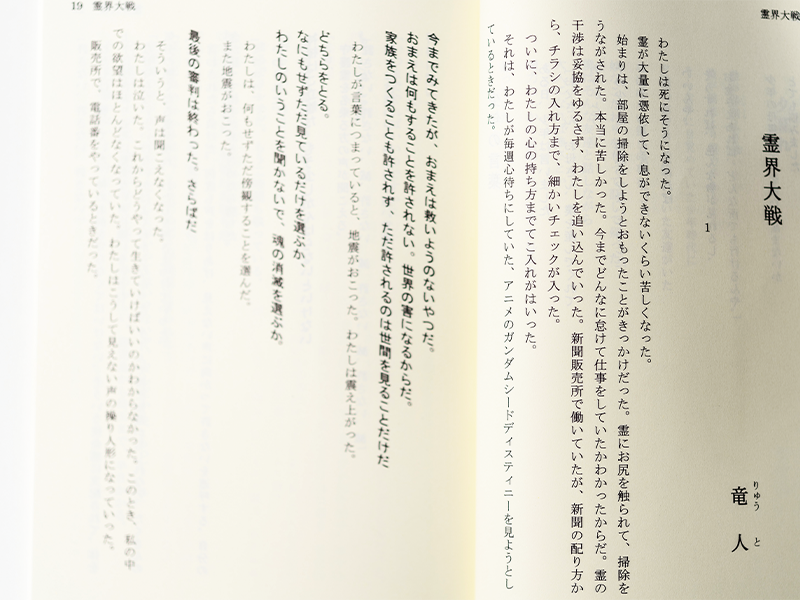 霊界大戦
霊界大戦
竜人
りゅうと
1
わたしは死にそうになった。
霊が大量に憑依して、息ができないくらい苦しくなった。
始まりは、部屋の掃除をしようとおもったことがきっかけだった。霊にお尻を触られて、掃除を
うながされた。本当に苦しかった。今までどんなに怠けて仕事をしていたかわかったからだ。霊の
干渉は妥協をゆるさず、わたしを追い込んでいった。新聞販売所で働いていたが、新聞の配り方か
ら、チラシの入れ方まで、細かいチェックが入った。
ついに、わたしの心の持ち方までてこ入れがはいった。
それは、わたしが毎週心待ちにしていた、アニメのガンダムシードディスティニーを見ようとし
ているときだった。
19 霊界大戦
今までみてきたが、おまえは救いようのないやつだ。
おまえは何もすることを許されない。世界の害になるからだ。
家族をつくることも許されず、ただ許されるのは世間を見ることだけだ
わたしが言葉につまっていると、地震がおこった。わたしは震え上がった。
どちらをとる。
なにもせずただ見ているだけを選ぶか、
わたしのいうことを聞かないで、魂の消滅を選ぶか。
わたしは、何もせずただ傍観することを選んだ。
また地震がおこった。
最後の審判は終わった。さらばだ。
そういうと、声は聞こえなくなった。
わたしは泣いた。これからどうやって生きていけばいいのかわからなかった。このとき、私の中
での欲望はほとんどなくなっていた。わたしはこうして見えない声の操り人形になっていった。
販売所で、電話番をやっているときだった。